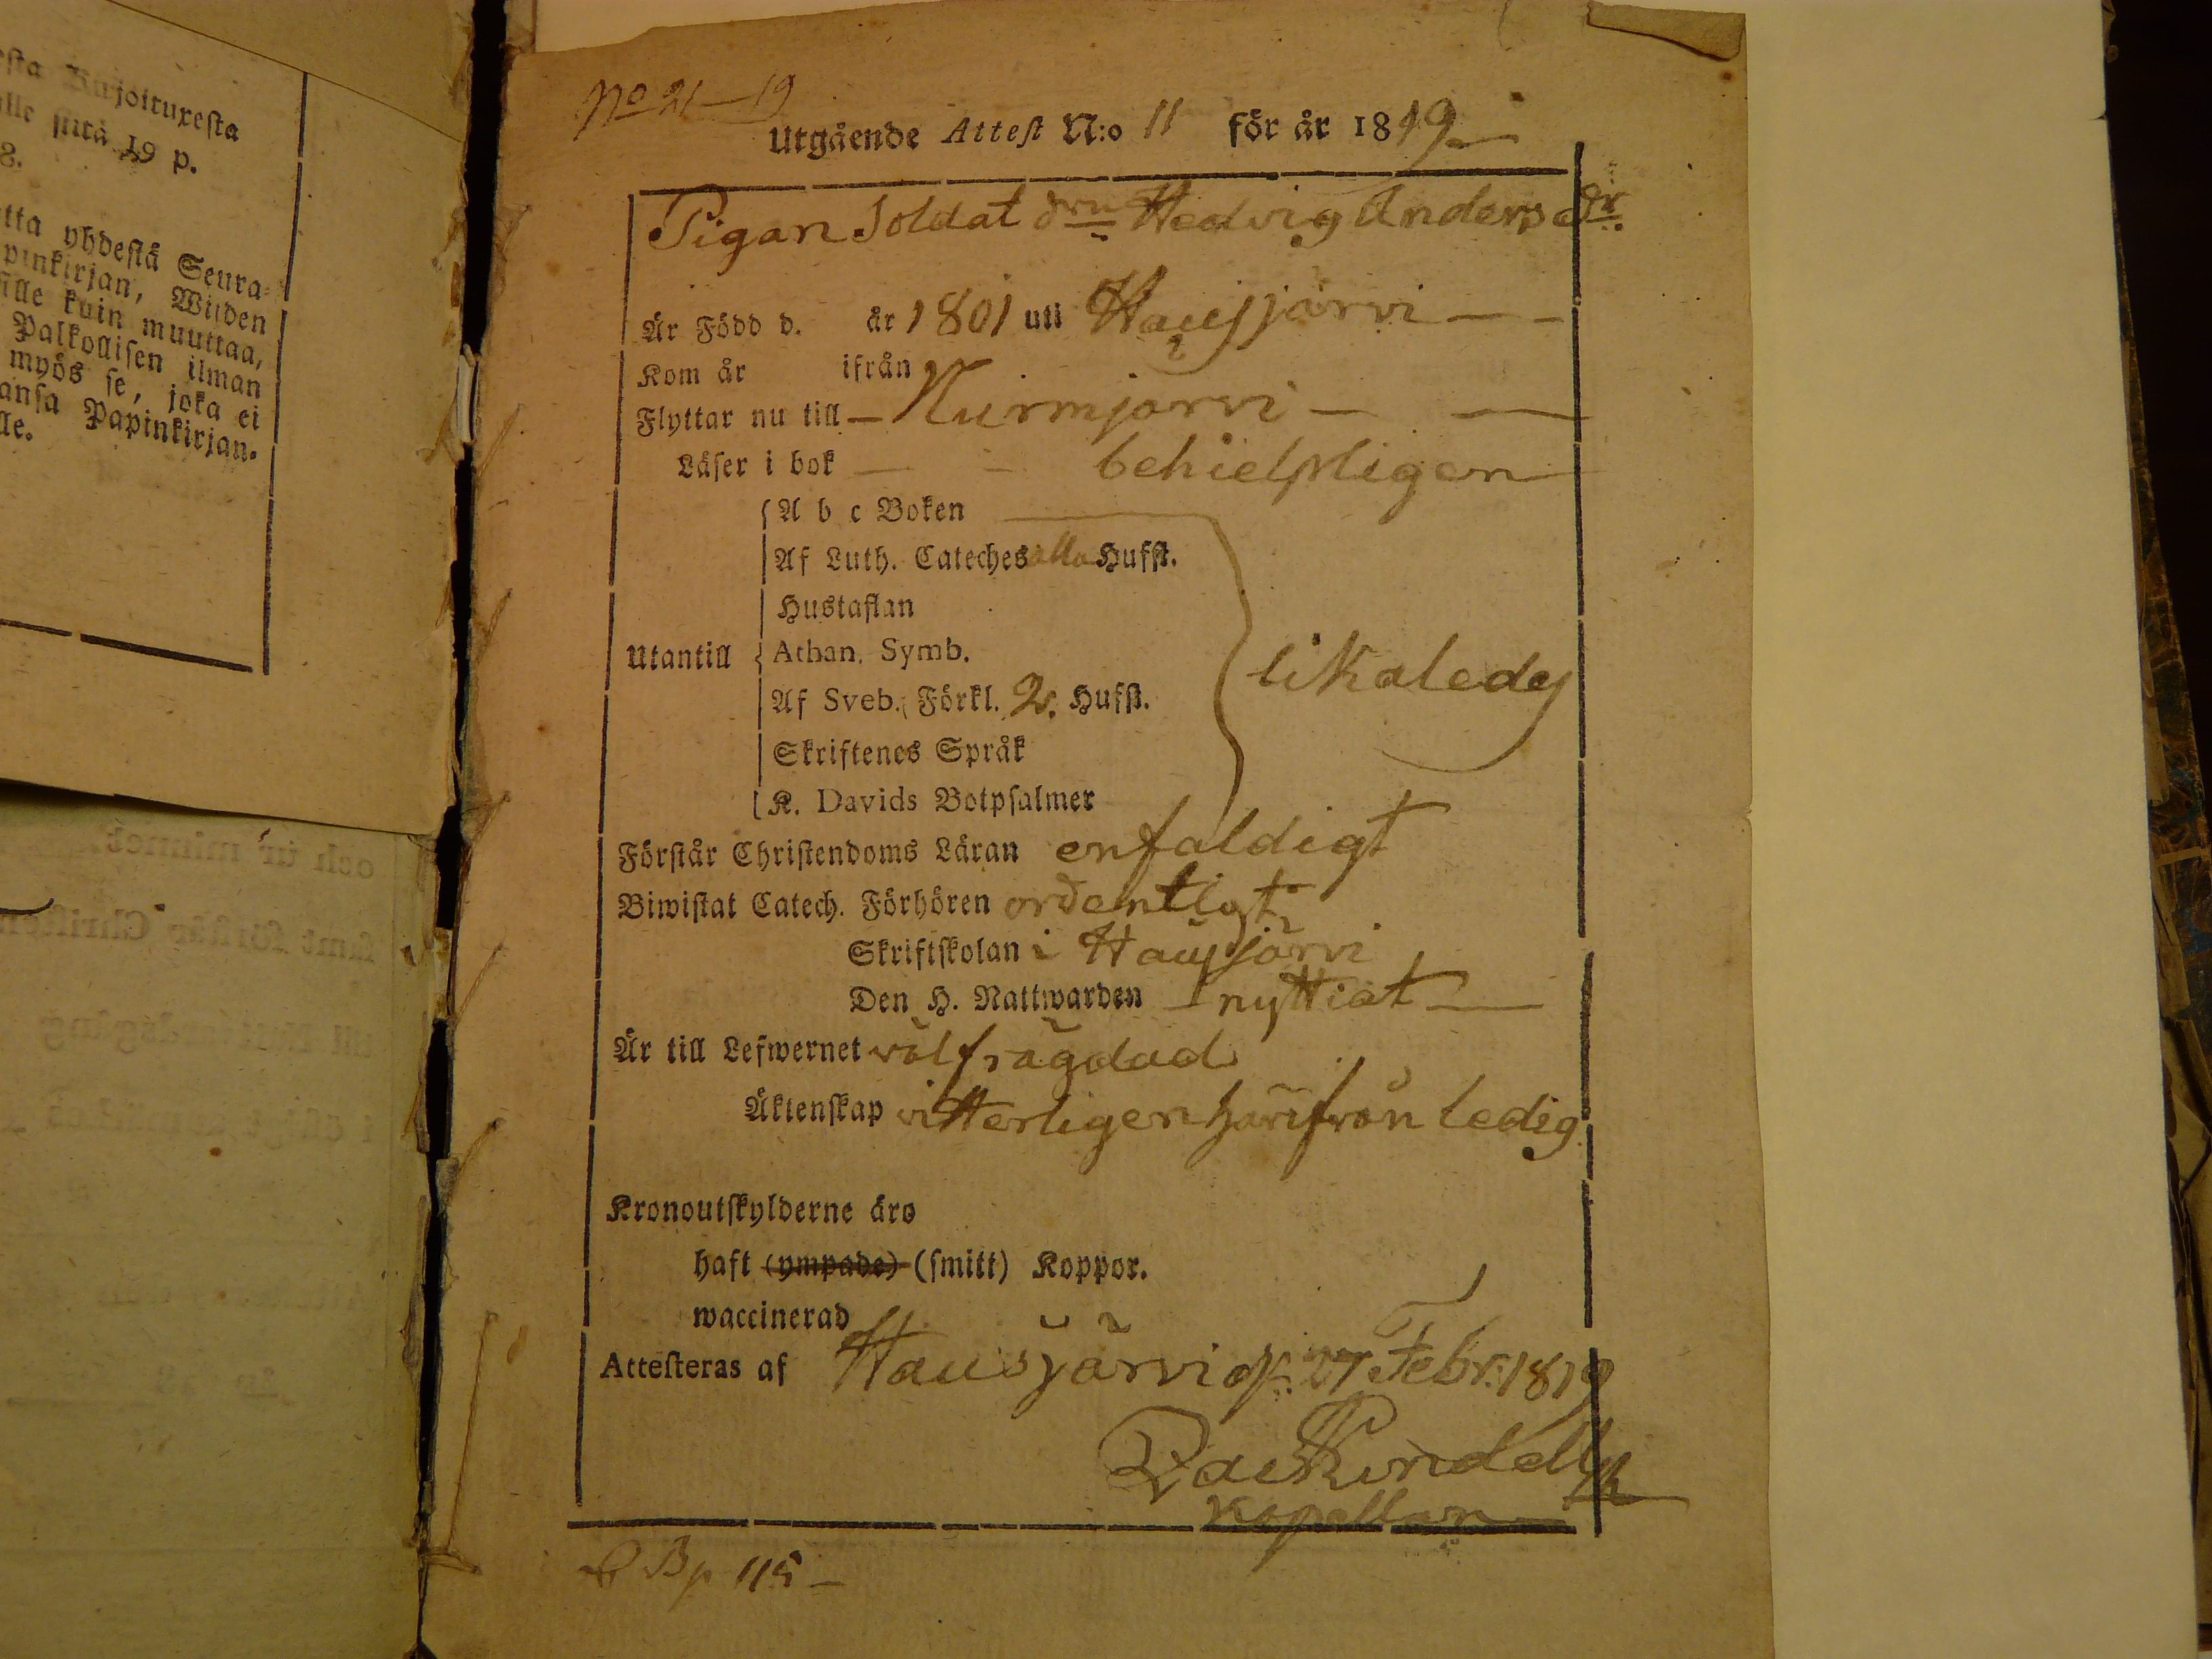 esta Kirjoituxesta
ille siitä 19 p.
8.
tta yhdestä Seura-
pinkirjan, Wiiden
sille kuin muuttaa,
Palkollisen ilman
myös se, joka ei
ansa Papinkirjan.
lle.
No 21—19
Utgående Attest N:o 11 för år 1819
Pigan Soldat drn Hedvig Andersdr.
Är Född d. år 1801 uti Hausjärvi — —
Kom år ifrån
Flyttar nu till — Nurmjärvi — —
Läser i bok — — behielpligen
A b c Boken
Af Luth. Cateches alla Hufst.
Hustaflan
Utantill Athan. Symb. likaledes
Af Sveb. Förkl. 2. Hufst.
Skriftenes Språk
K. Davids Botpsalmer
Förstår Christendoms Läran enfaldigt
Biwistat Catech. Förhören ordentligt
Skriftskolan i Hausjärvi
Den H. Nattwarden — nyttiat —
Är till Lefwernet välfrägdad
Äktenskap vitterligen härifrån ledig
Kronoutskylderne äro
haft (ympade) (smitt) Koppor.
waccinerad
Attesteras af Hausjärvi d. 27 Febr. 1819
Kapellan
Bp 115 —